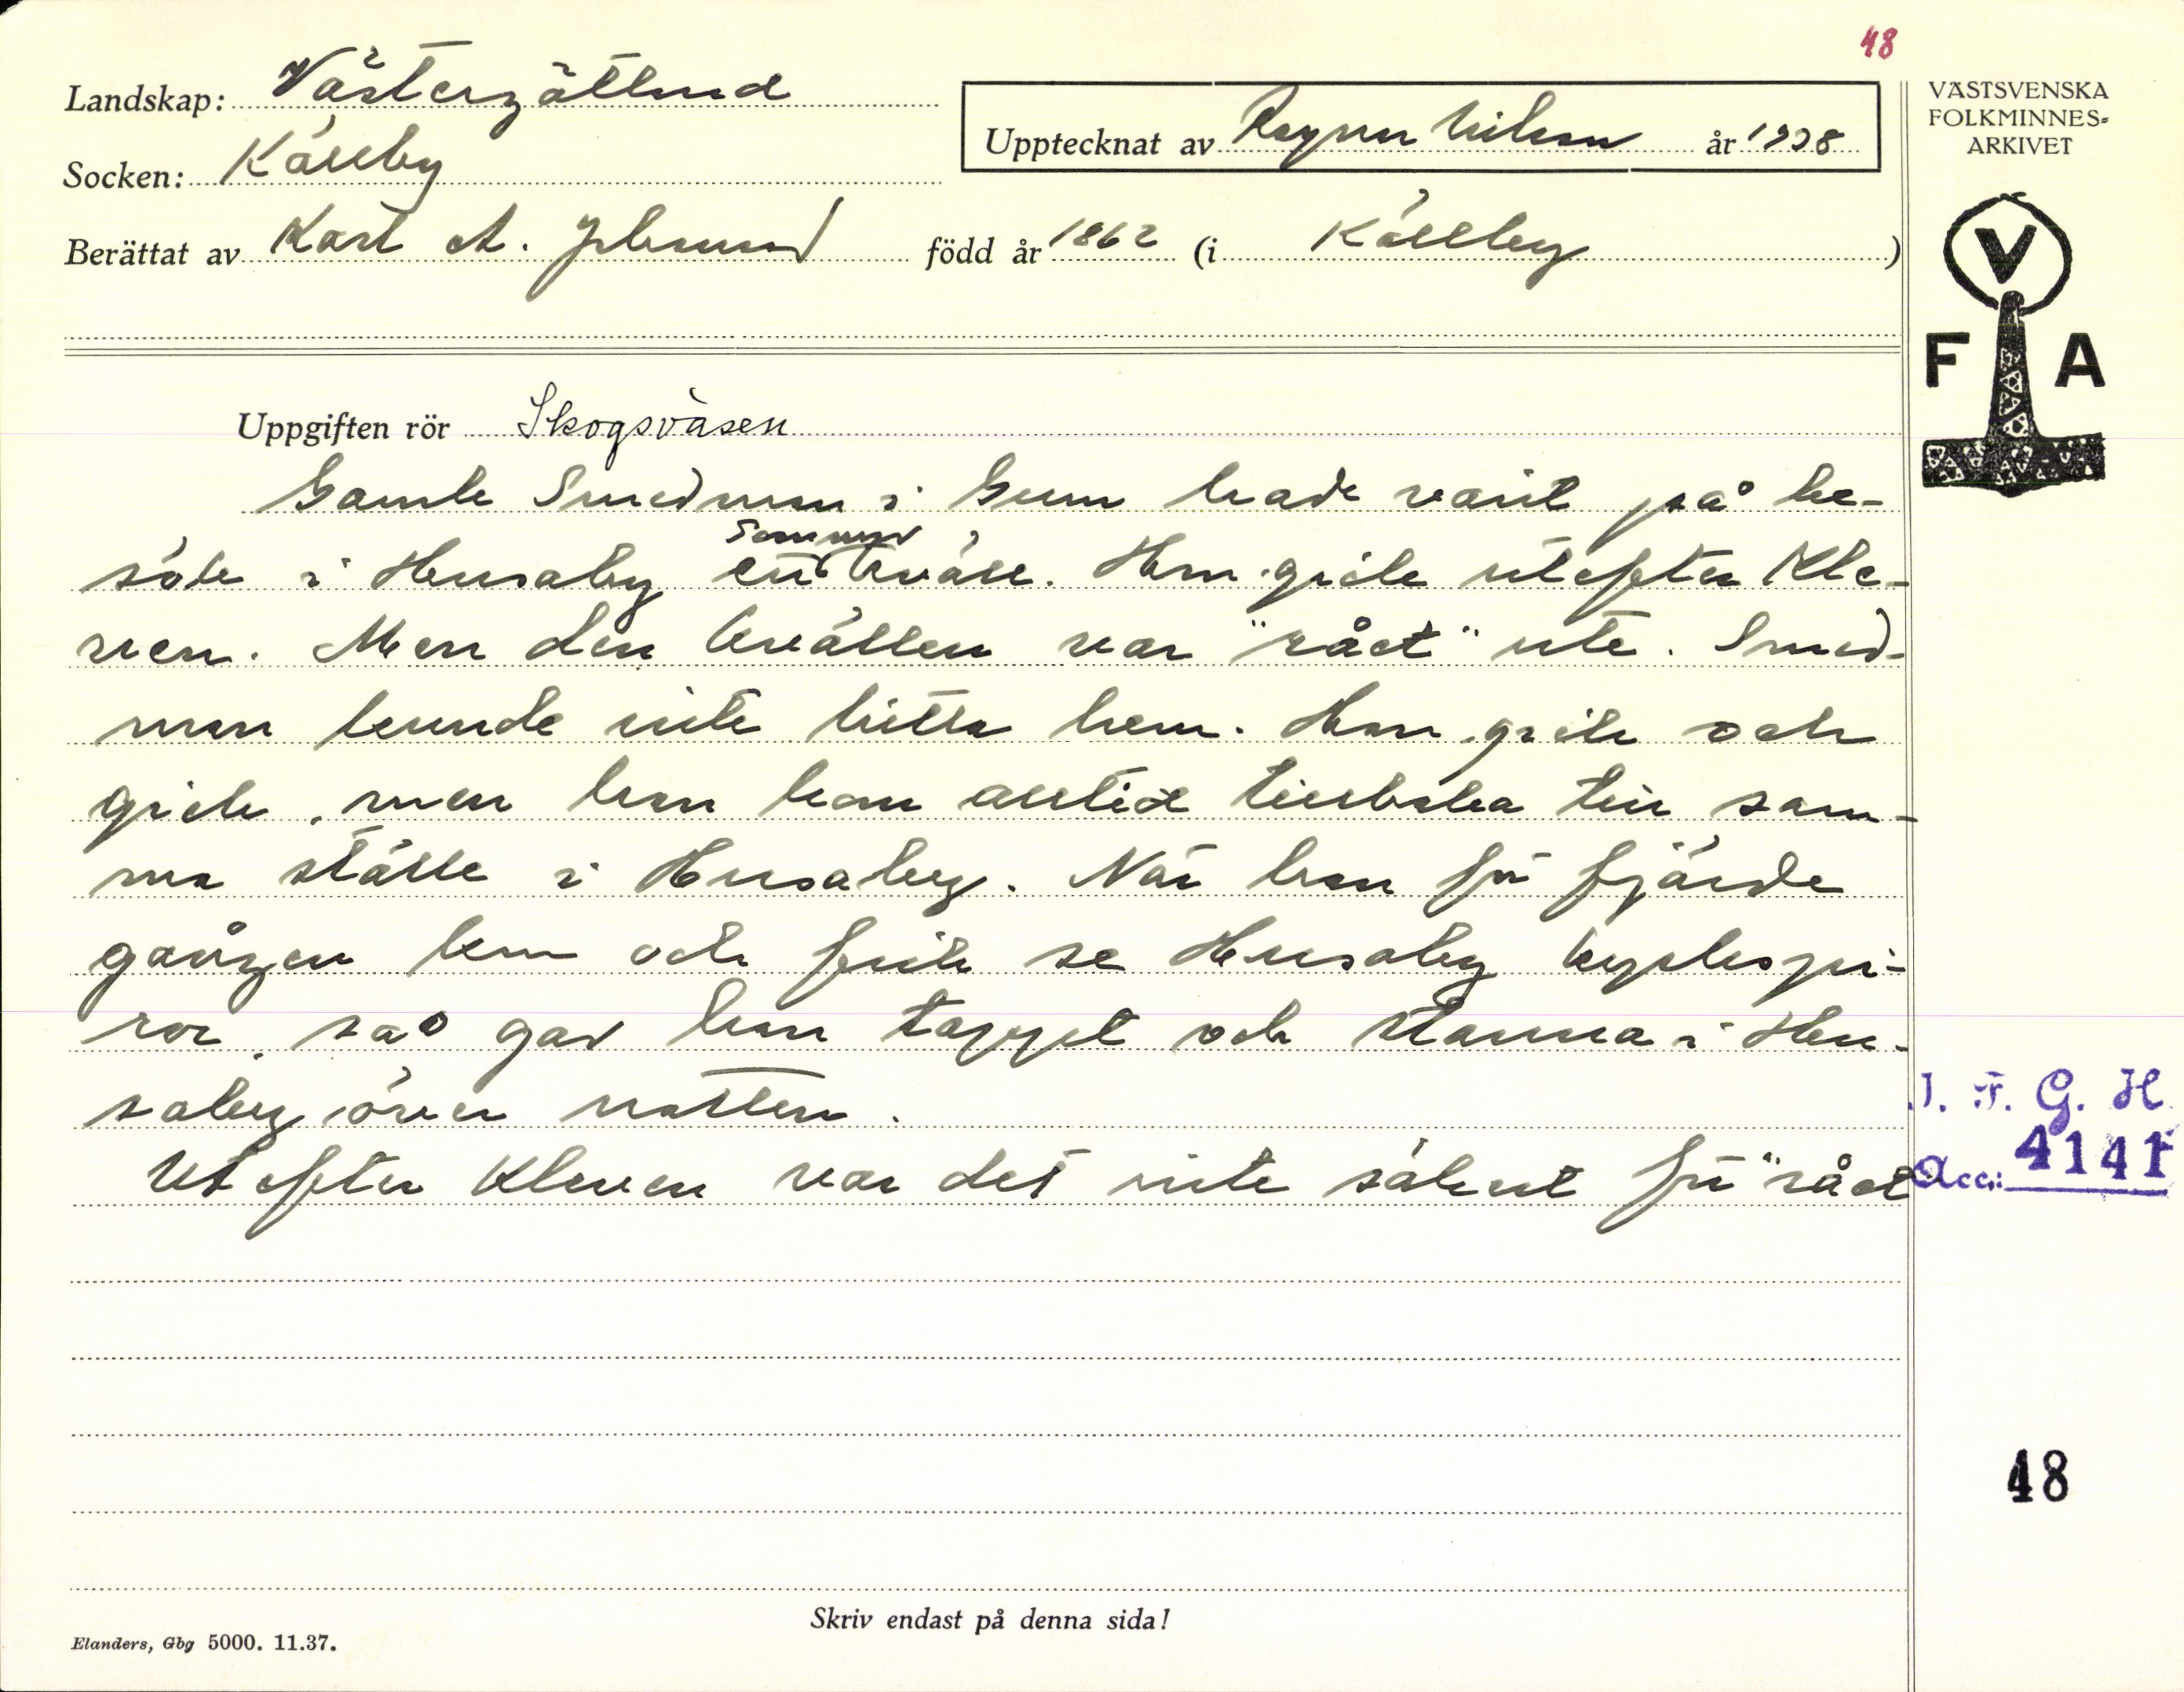 48
Landskap: Västergötland
Socken: Källby
Upptecknat av Ragnar Nilsson år 1938
VÄSTSVENSKA
FOLKMINNES-
ARKIVET
Berättat av Karl A. född år 1862 (i Källby)
V
F A
Uppgiften rör Skogsväsen
Gamle Smedman i Gum hade varit på be-
sök i Husaby en sommarkväll. Han gick utefter Kle-
ven. Men den kvällen var "rået" ute. Smed-
man kunde inte hitta hem. Han gick och
gick, men han kom alltid tillbaka till sam-
ma ställe i Husaby. När han för fjärde
gången kom och fick se Husaby kyrkospi-
ror, så gav han tappt och stanna i Hu-
saby över natten.
Utefter Kleven var det inte säkert för "rået
I. F. G. H.
Acc: 4141
48
Skriv endast på denna sida!
Elanders, Gbg 5000. 11.37.